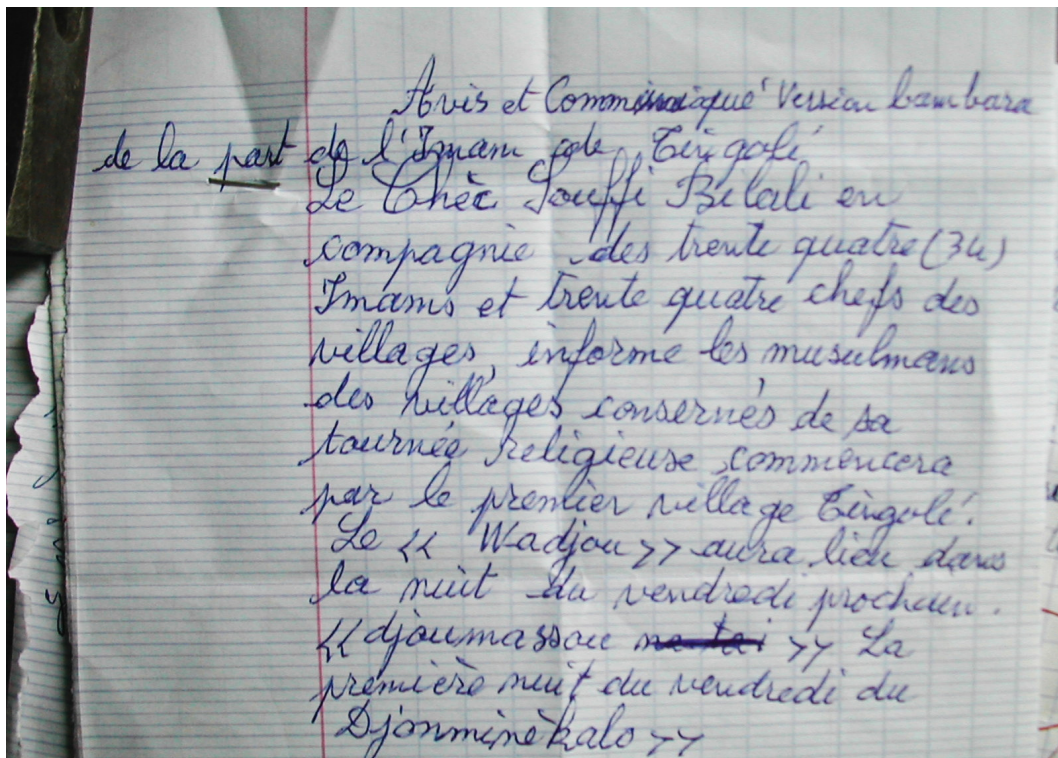 Avis et Communiqué Version bambara
de la part de l'Imam de Tingolé
Le Chèc Souffi Bilali en
compagnie des trente quatre (34)
Imams et trente quatre chefs des
villages, informe les musulmans
des villages consernés de sa
tournée religieuse commencera
par le premier village Tingolé.
Le << Wadjou >> aura lieu dans
la nuit du vendredi prochain.
<< djoumassou >> La
première nuit du vendredi du
Djonminèkalo >>